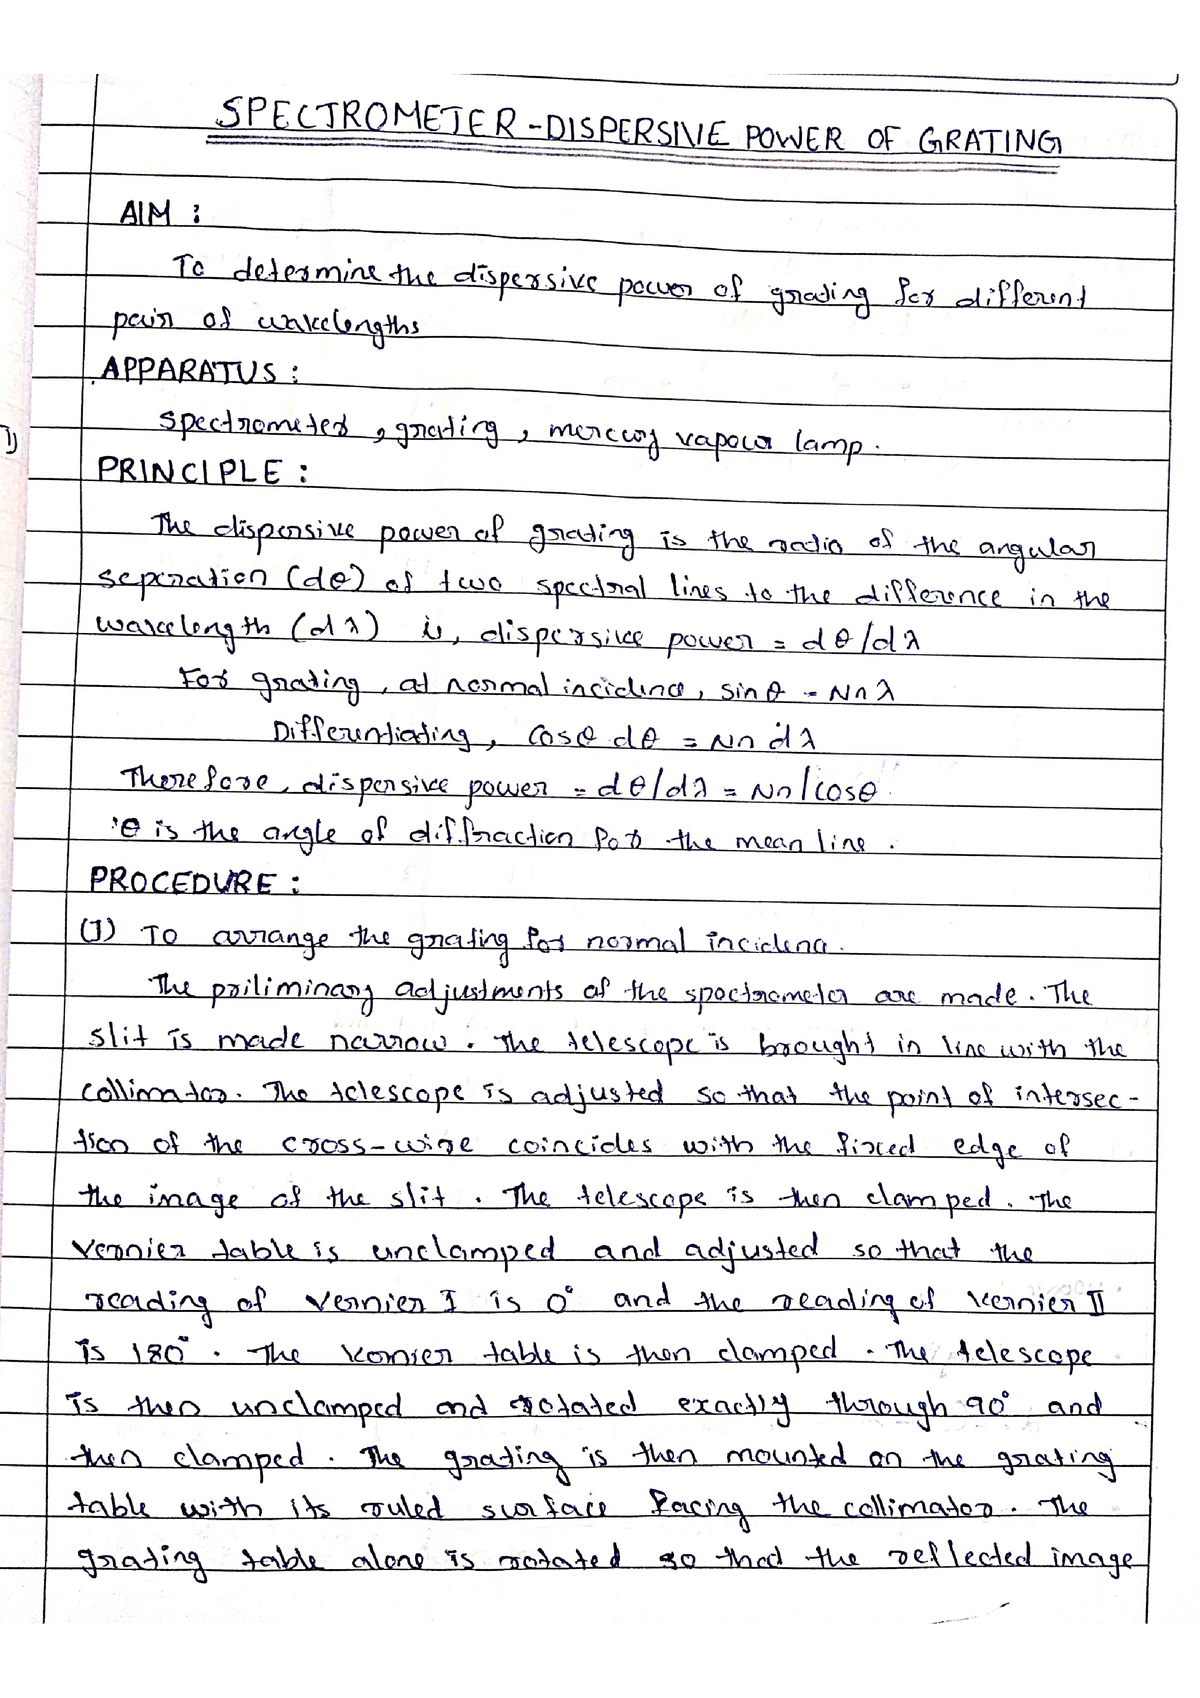 SPECTROMETER - DISPERSIVE POWER OF GRATING
AIM :
To determine the dispersive power of grating for different
pair of wavelengths
APPARATUS :
Spectrometer, grating, mercury vapour lamp.
1)
PRINCIPLE :
The dispersive power of grating is the ratio of the angular
seperation (dθ) of two spectral lines to the difference in the
wavelength (dλ) ie, dispersive power = dθ/dλ
For grating, at normal incidence, sinθ = Nnλ
Differentiating, Cosθ dθ = Nn dλ
Therefore, dispersive power = dθ/dλ = Nn/cosθ
θ is the angle of diffraction for the mean line.
PROCEDURE :
(1) To arrange the grating for normal incidence.
The priliminary adjustments of the spectrometer are made. The
slit is made narrow. The telescope is brought in line with the
collimator. The telescope is adjusted so that the point of intersec-
tion of the cross-wire coincides with the fixed edge of
the image of the slit. The telescope is then clamped. The
vernier table is unclamped and adjusted so that the
reading of vernier I is 0° and the reading of vernier II
is 180°. The vernier table is then clamped. The telescope
is then unclamped and rotated exactly through 90° and
then clamped. The grating is then mounted on the grating
table with its ruled surface facing the collimator. The
grating table alone is rotated so that the reflected image